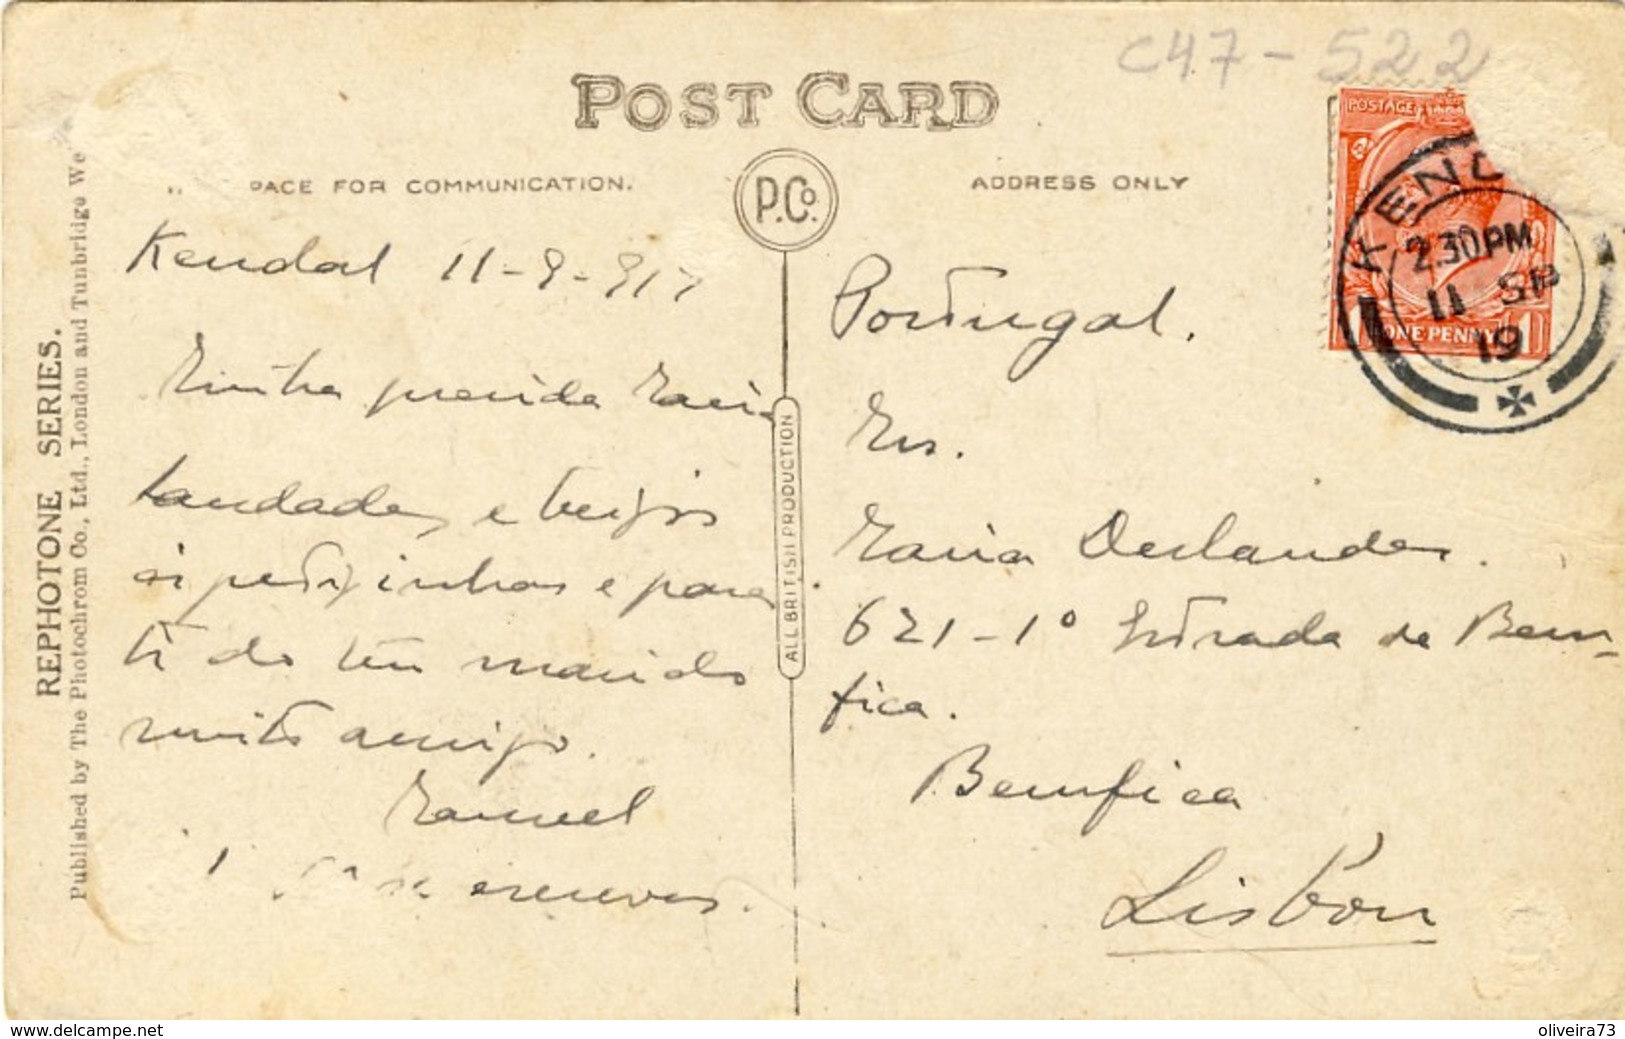 C47-522
POST CARD
PACE FOR COMMUNICATION.
P.Co.
ADDRESS ONLY
POSTAGE
KEND
2.30PM
11 SP
19
ONE PENNY
REPHOTONE SERIES.
Published by The Photochrom Co., Ltd., London and Tunbridge We
ALL BRITISH PRODUCTION
Kendal 11-9-917
Minha querida Maria
Saudades, e beijos
ós pequeninhos e para
ti do teu marido
muito amigo.
Manuel
escreves.
Portugal.
Mrs.
Maria Deslandes.
621-1º Estrada de Bem-
fica.
Bemfica
Lisbon
www.delcampe.net
oliveira73